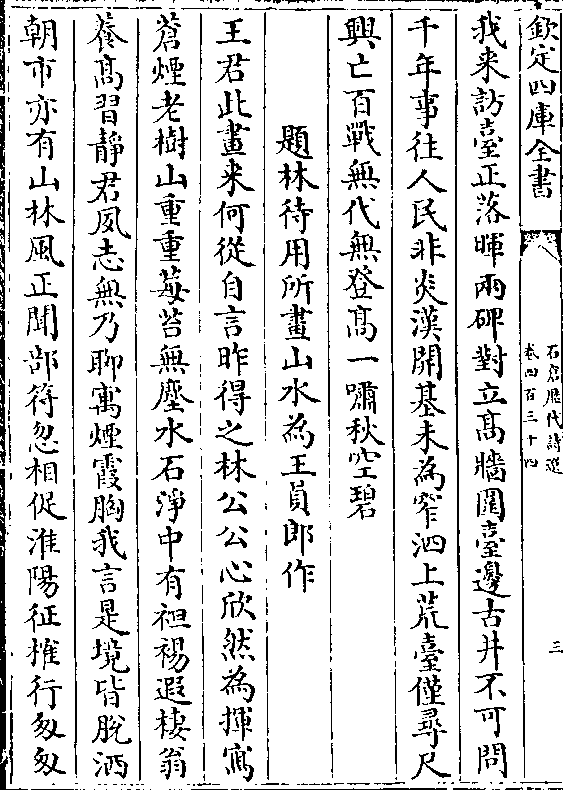 欽定四庫全書
石倉歷代詩選
卷四百三十四
三
我来訪臺正落暉兩碑對立髙牆圍臺邊古井不可問
千年事往人民非炎漢開基未為窄泗上荒臺僅尋尺
興亡百戰無代無登髙一嘯秋空碧
題林待用所畫山水為王員郎作
王君此畫来何從自言昨得之林公公心欣然為揮寫
蒼煙老樹山重重莓苔無塵水石淨中有袒裼遐棲翁
養髙習靜君夙志無乃聊寓煙霞胸我言是境皆脫洒
朝市亦有山林風正聞部符忽相促淮陽征榷行匆匆